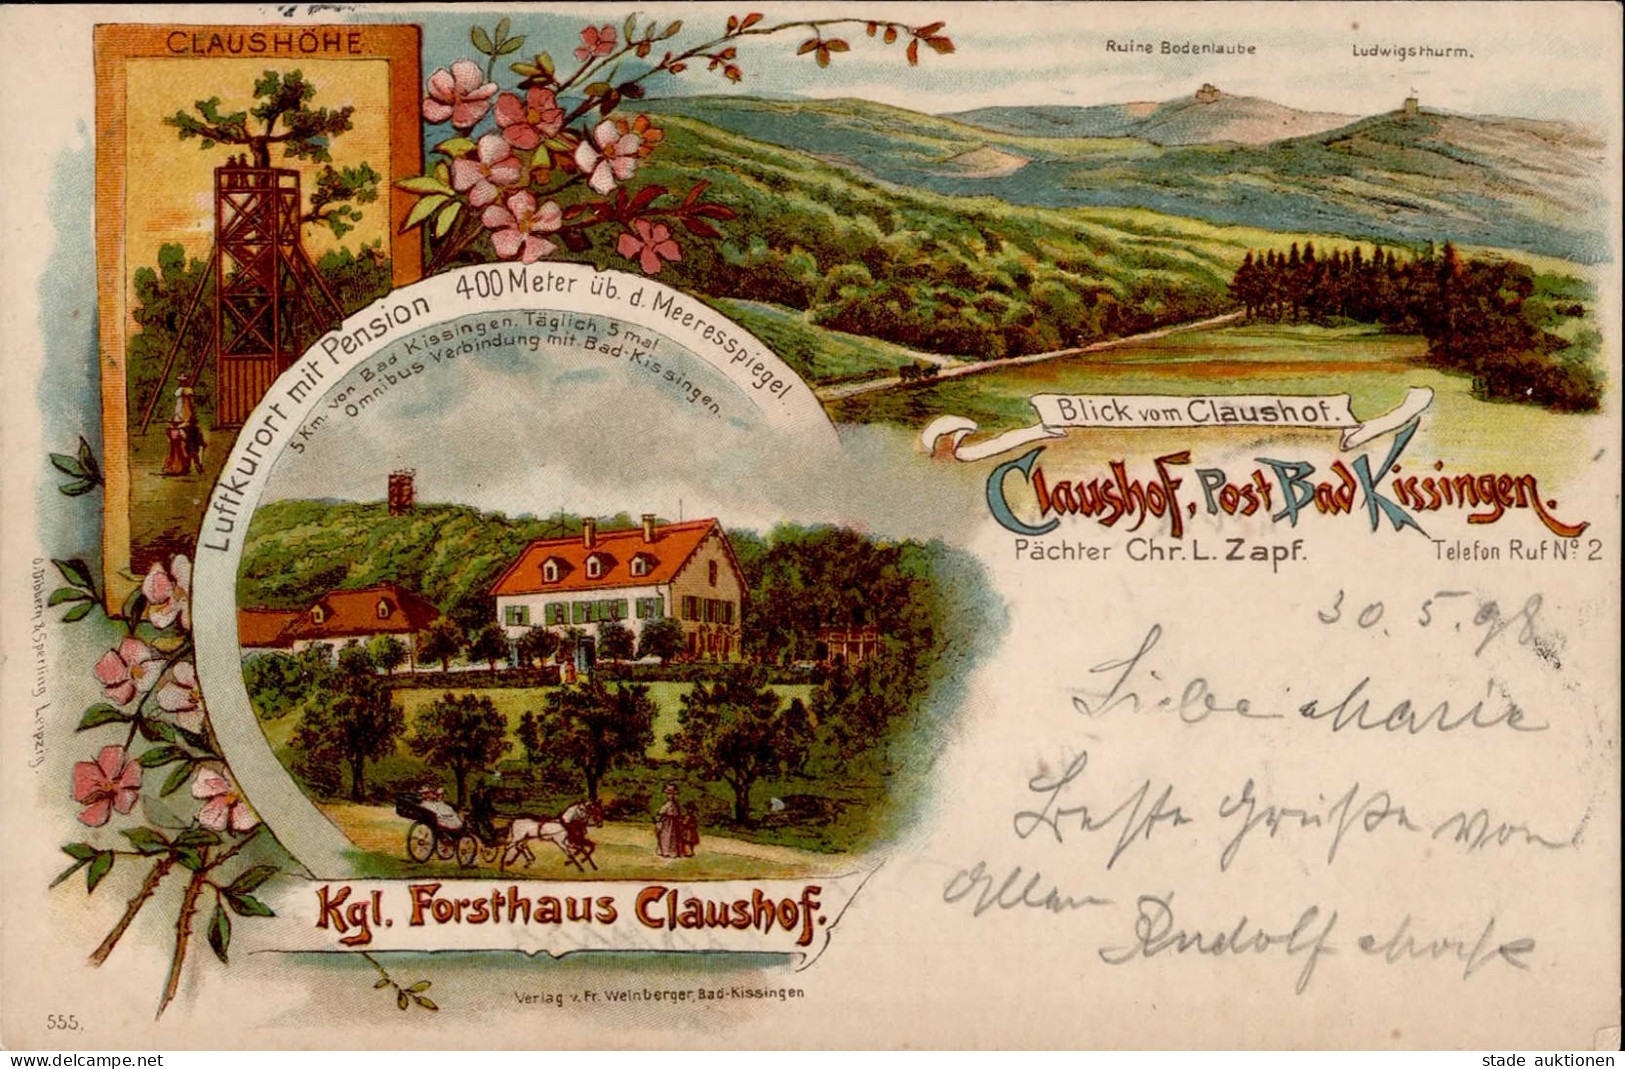 CLAUSHÖHE.
Ruine Bodenlaube
Ludwigsthurm.
Luftkurort mit Pension 400 Meter üb. d. Meeresspiegel.
5 Km. von Bad Kissingen. Täglich 5 mal
Omnibus Verbindung mit Bad-Kissingen.
Blick vom Claushof.
Claushof, Post Bad Kissingen.
Pächter Chr. L. Zapf.
Telefon Ruf No. 2
30. 5. 98
Liebe Marie
Beste Grüße von
Allen
Rudolf
Kgl. Forsthaus Claushof.
Verlag v. Fr. Weinberger, Bad-Kissingen
555.
& Sperling Leipzig.
delcampe.net
stade auktionen